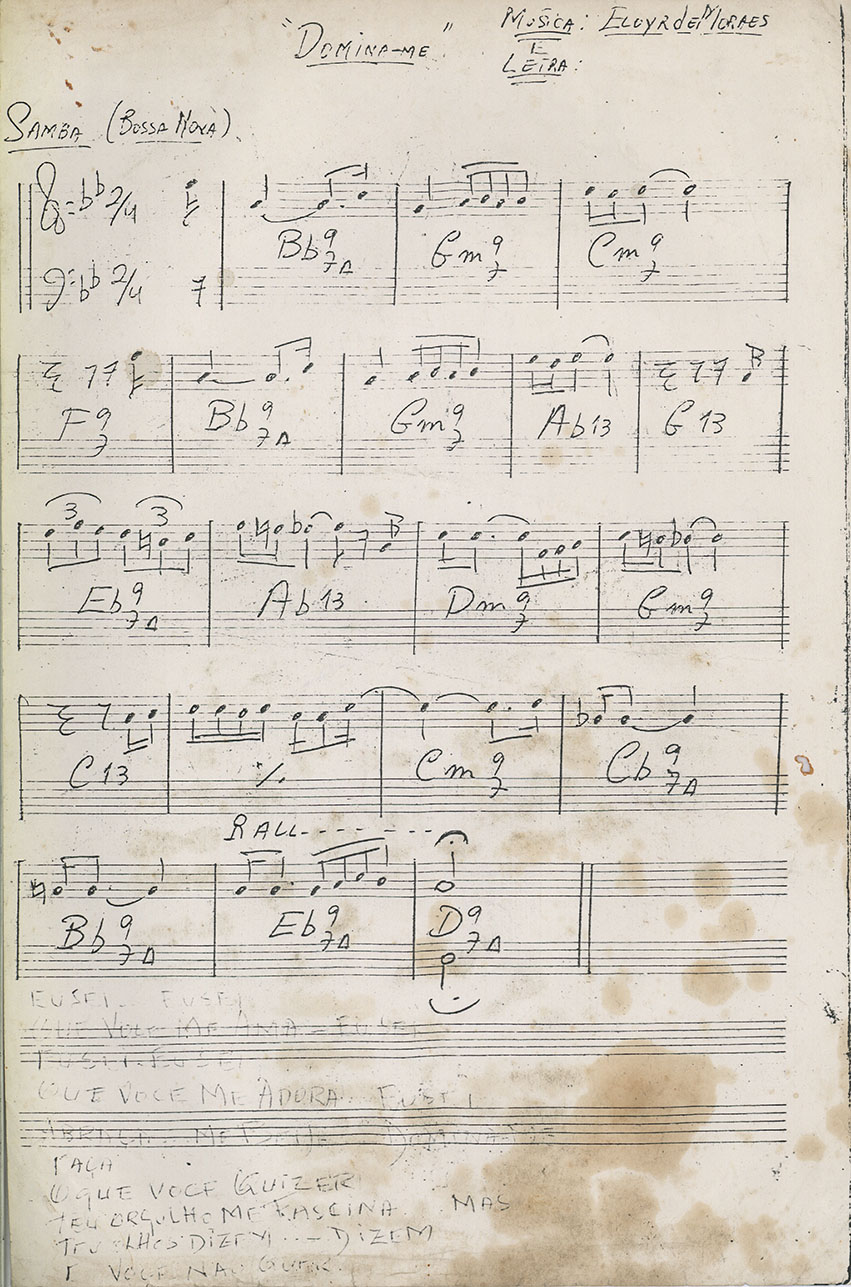 "DOMINA-ME" MUSICA: ELOYR DE MORAES
E
LETRA:
SAMBA (BOSSA NOVA)
2/4
2/4
Bb 9 7Δ Gm 9 7 Cm 9 7
F 9 7 Bb 9 7Δ Gm 9 7 Ab13 G 13
3 3
Eb 9 7Δ Ab13 Dm 9 7 Gm 9 7
C13 ٪ Cm 9 7 Cb 9 7Δ
RALL--------
Bb 9 7Δ Eb 9 7Δ D 9 7Δ
EU SEI. EU SEI
QUE VOCE ME AMA - EU SEI
EU SEI. EU SEI
QUE VOCE ME ADORA.. EU SEI
ABRAÇA... ME DOMINA-ME
FAÇA
O QUE VOCE QUIZER
TEU ORGULHO ME FASCINA. MAS
TEU OLHOS DIZEM ... - DIZEM
E VOCE NAO QUER.